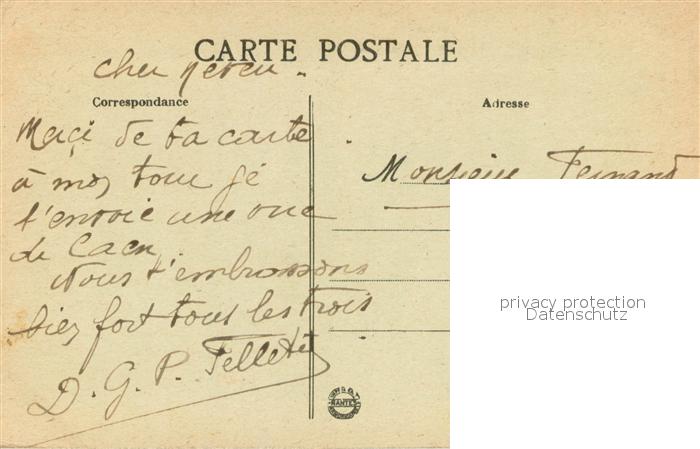 CARTE POSTALE
cher neveu.
Correspondance
Adresse
Merçi de ta carte
à mon tour je
t'envoie une vue
de Caen
Nous t'embrassons
bien fort tous les trois
D. G. P. Pelletet
Monsieur Fernand
privacy protection
Datenschutz
NANTES